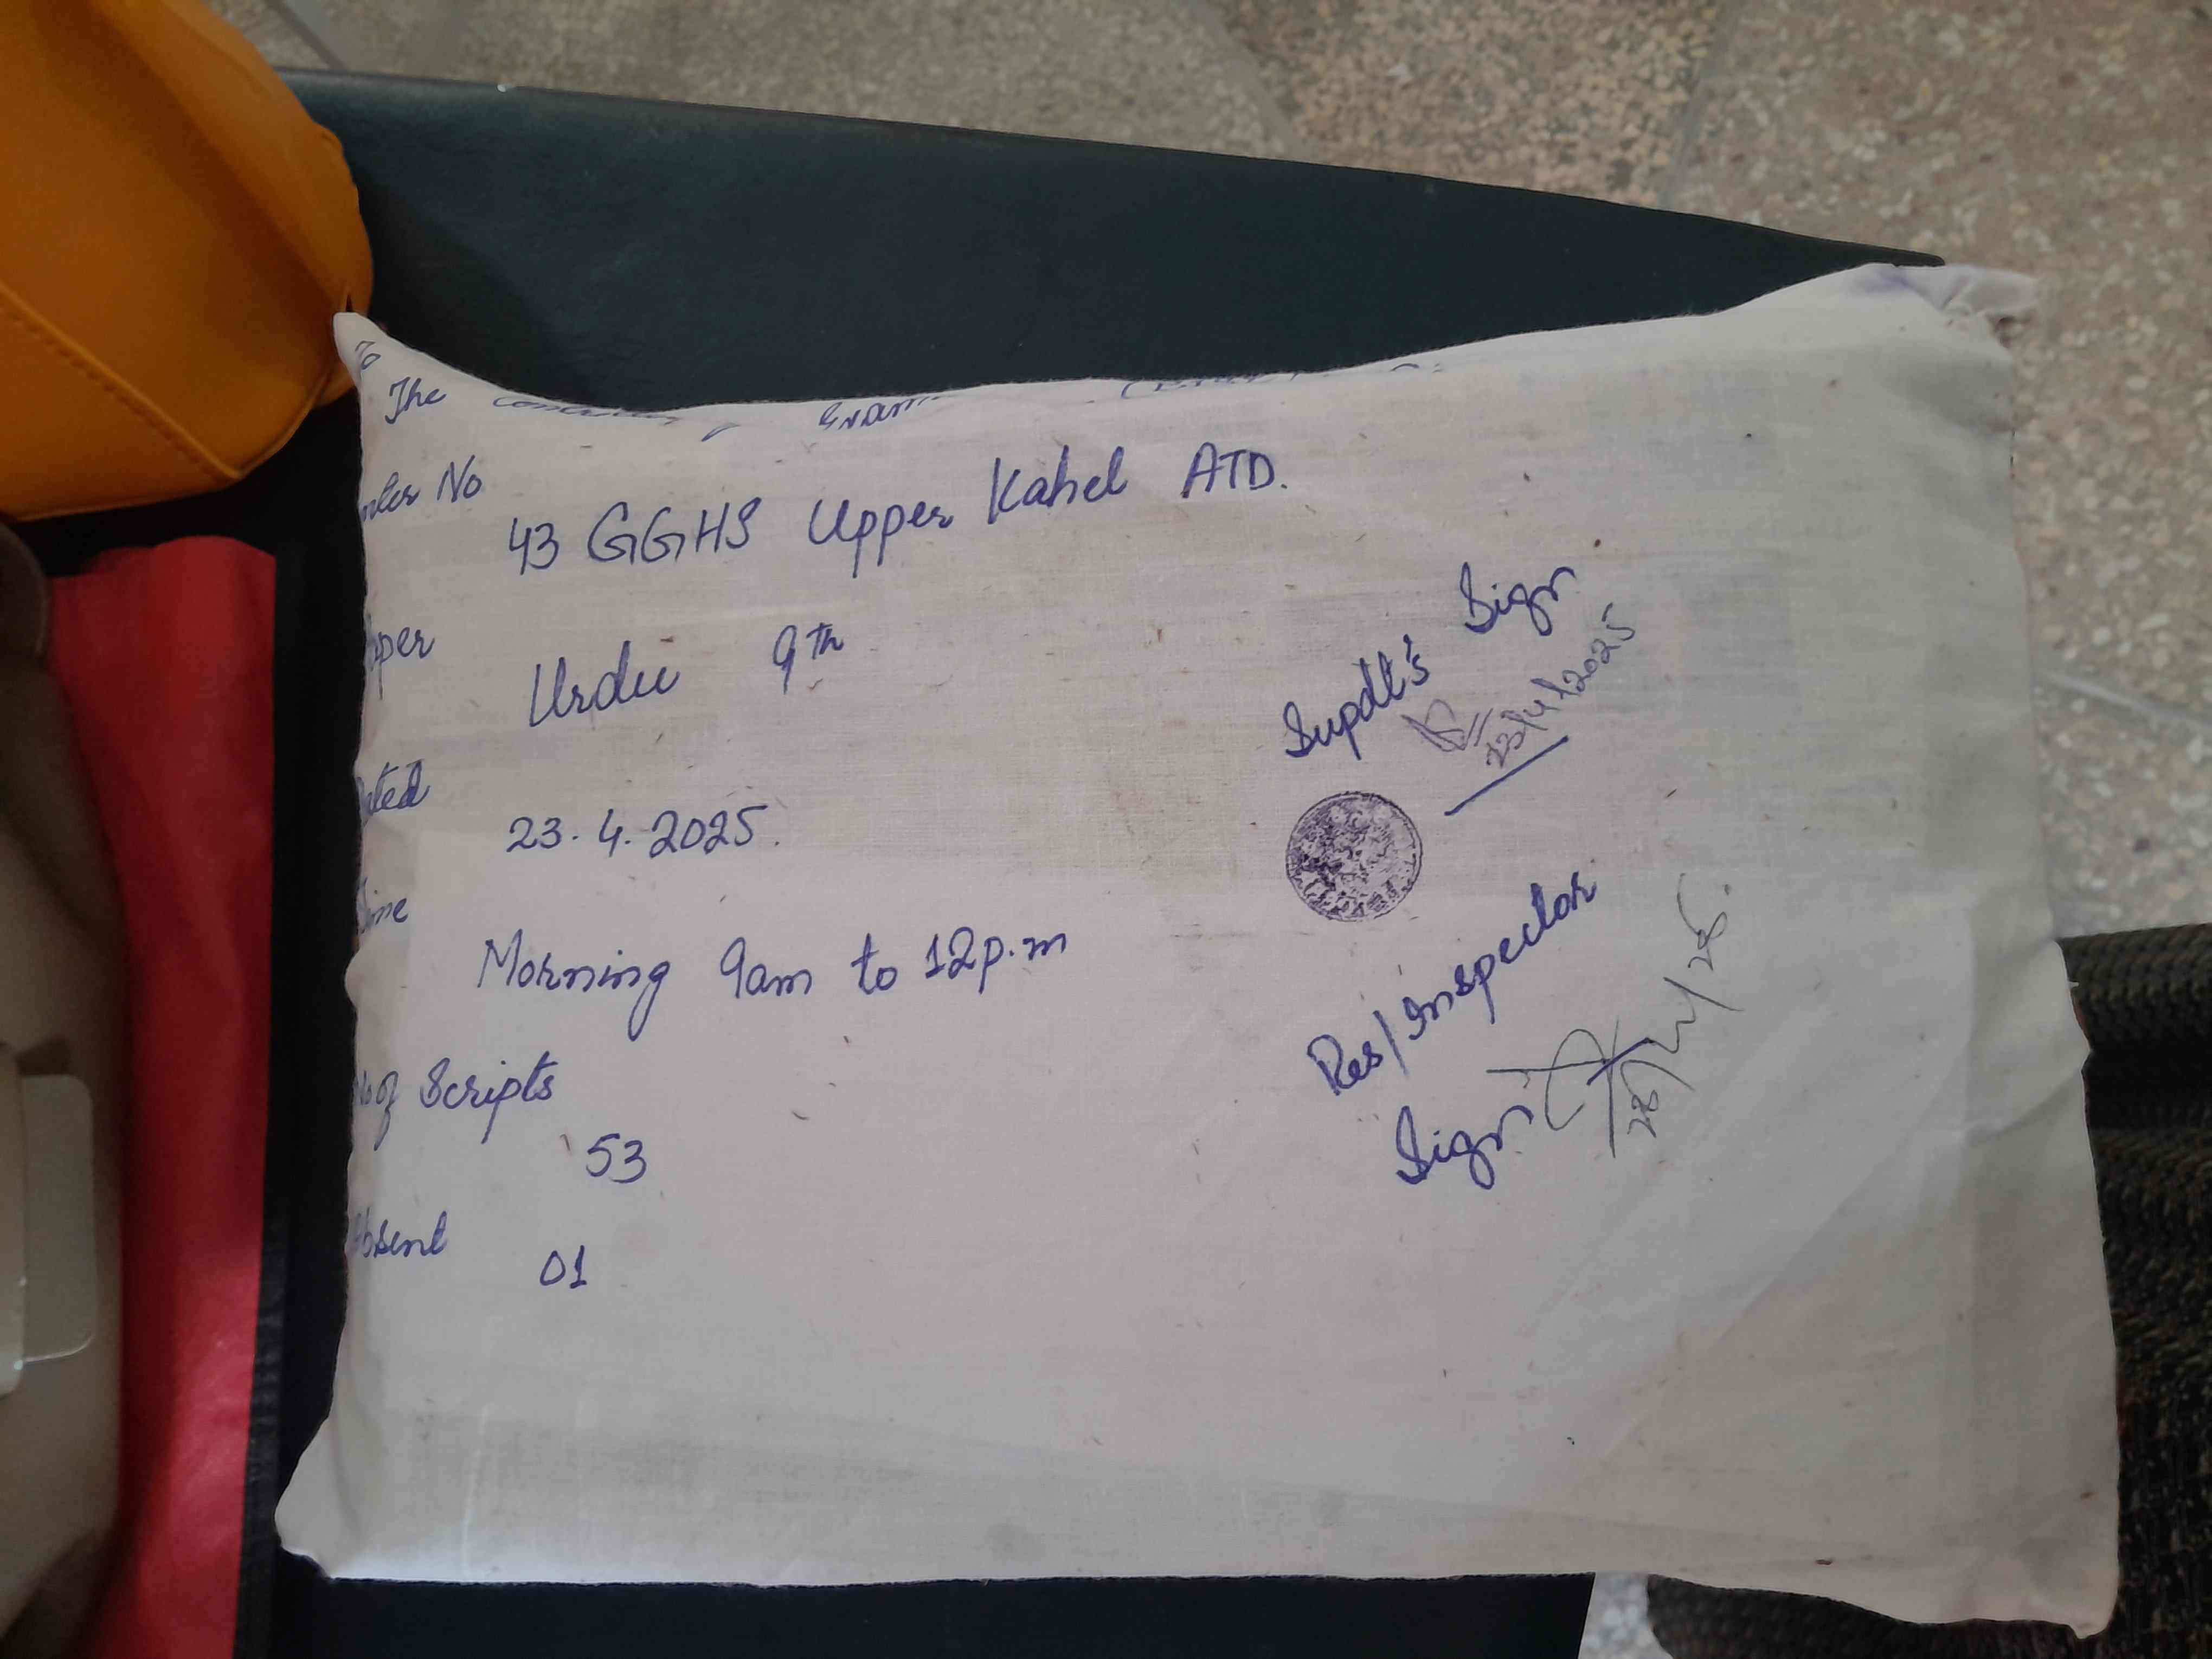 To
The
Center No
43 GGHS Upper Kahel ATD.
Paper
Urdu 9th
Dated
23.4.2025.
Time
Morning 9am to 12p.m
No of Scripts
53
Absent
01
Supdt's Sign
23/4/2025
Res/Inspector
Sign